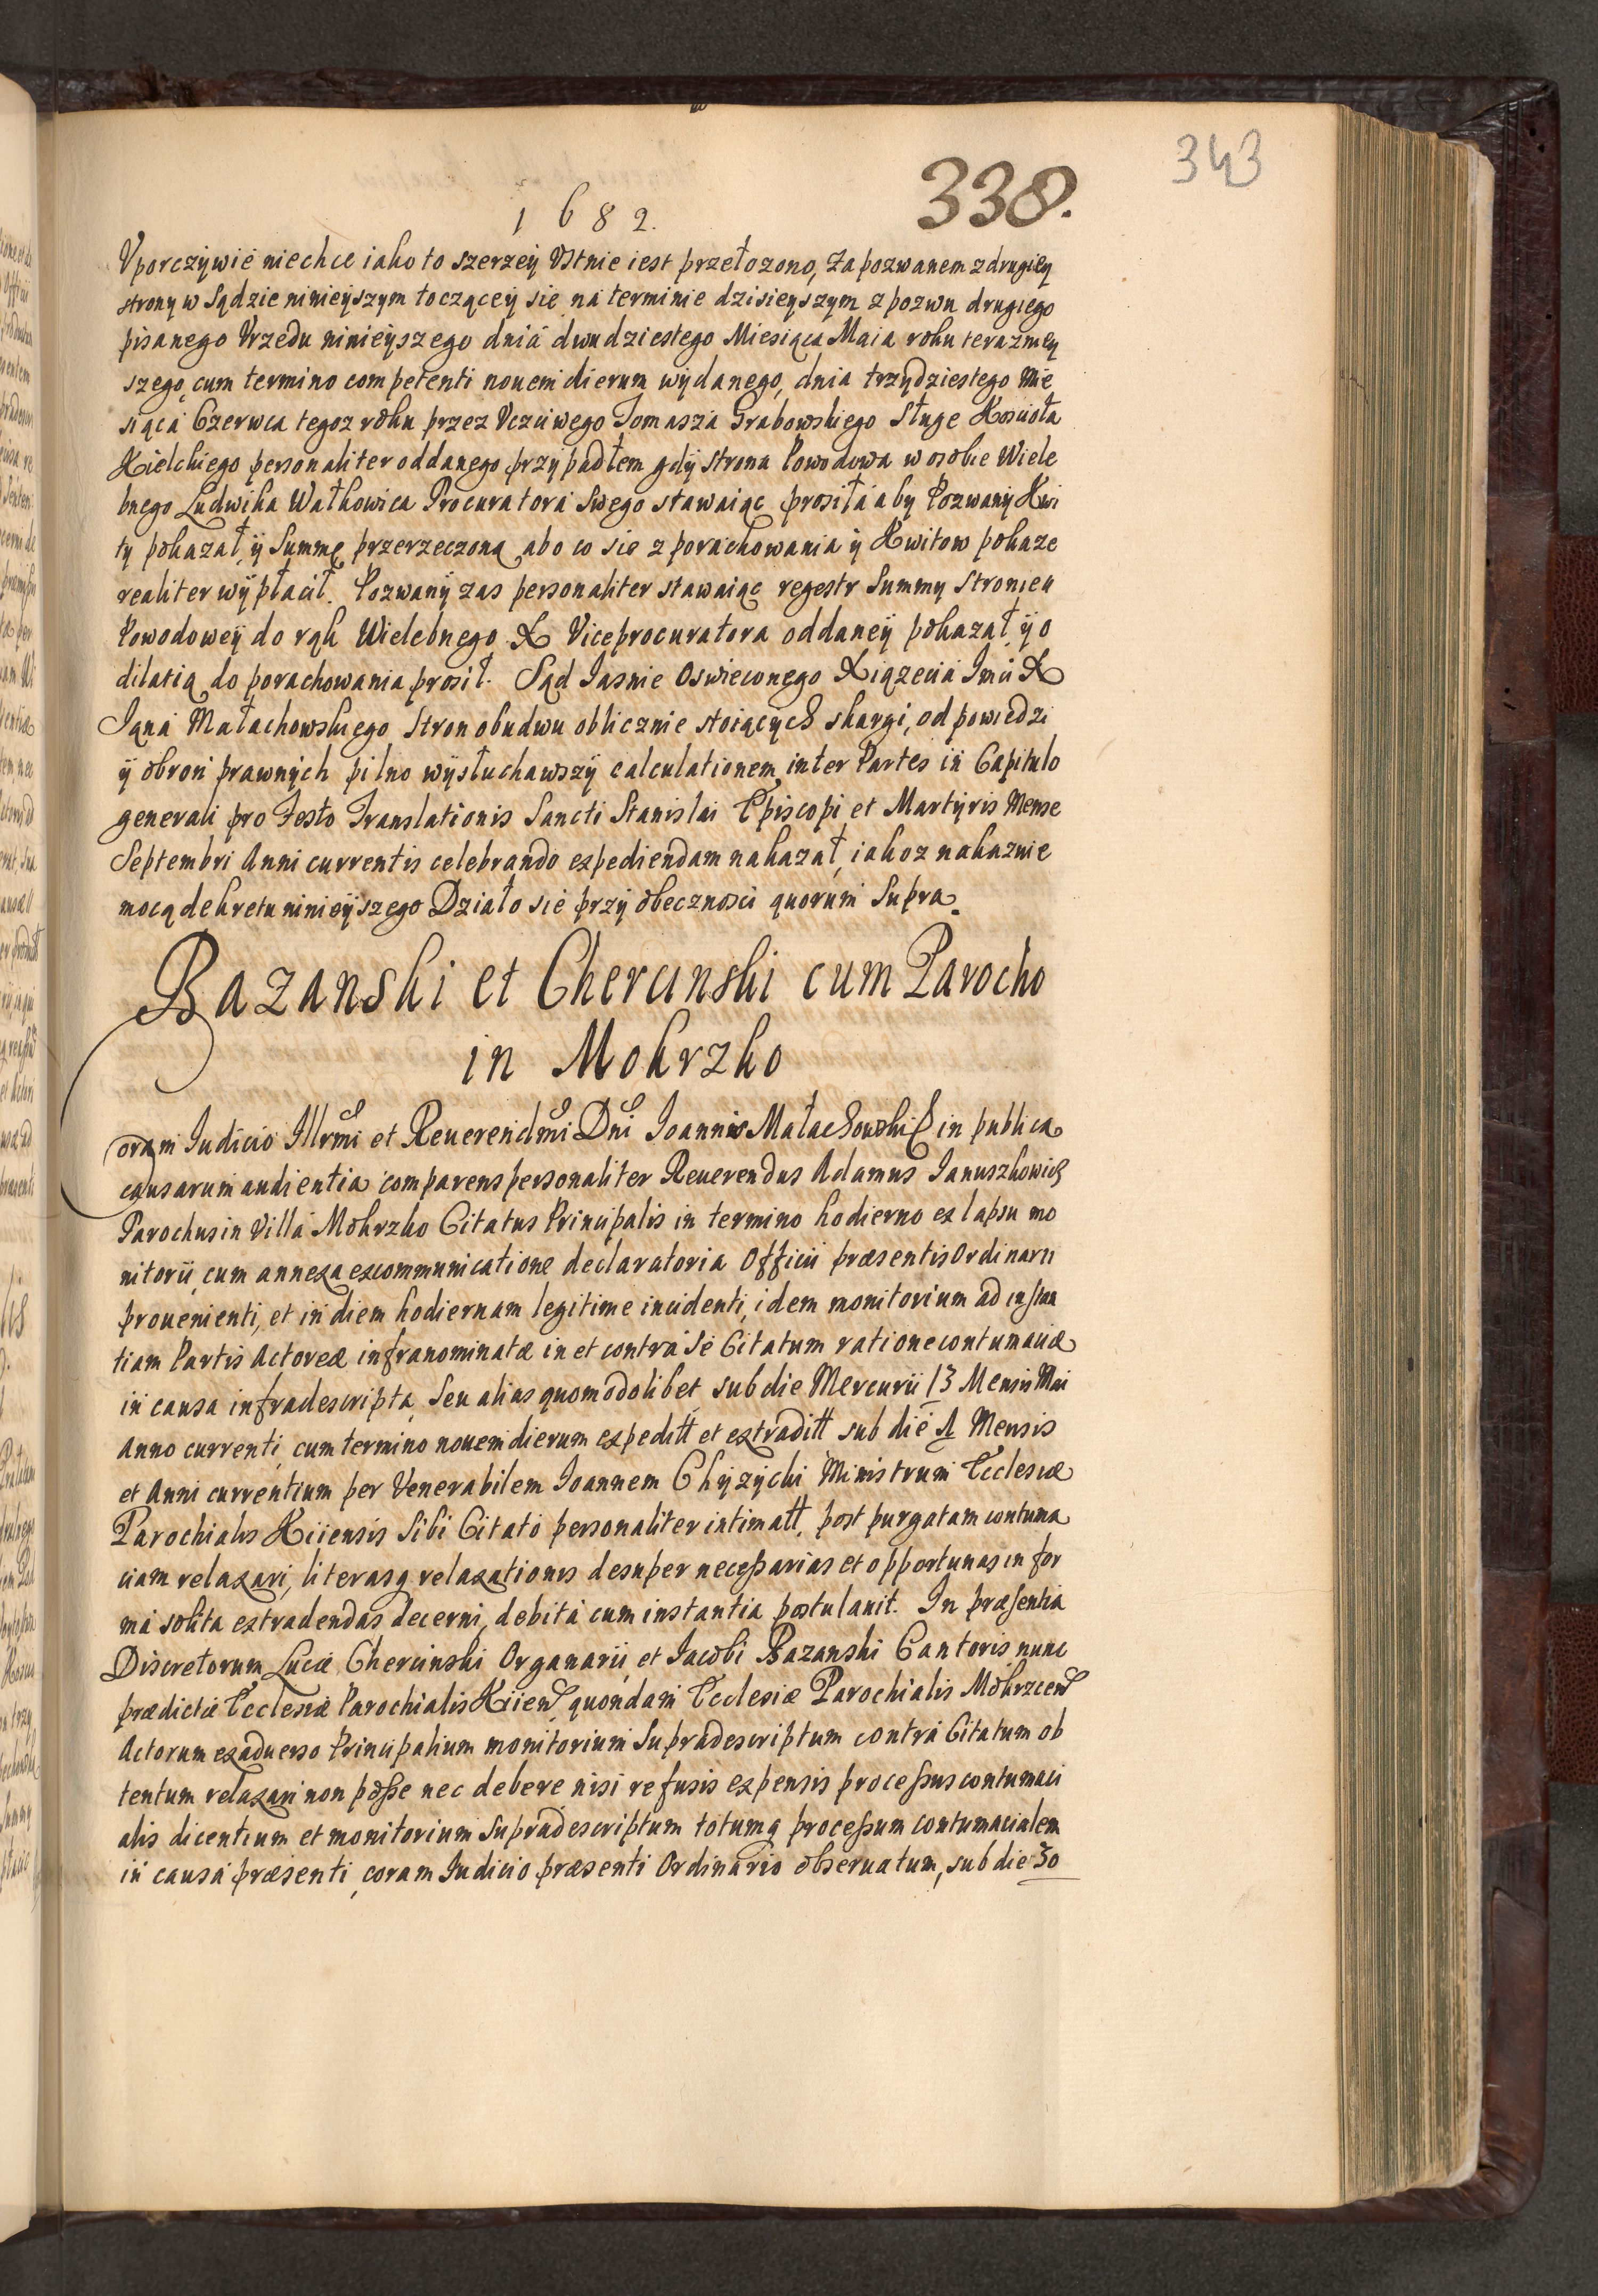 343
338.
1682.
Vporczywie niechce iako to szerzey Vstnie iest przełozono, Za pozwanem z drugiey
strony w Sądzie ninieyszym toczącey sie na terminie dzisieyszym z pozwu drugiego
pisanego Vrzedu ninieyszego dnia dwudziestego Miesiąca Maia roku terazniey
szego, cum termino competenti nouem dierum wydanego, dnia trzydziestego Mie
siąca Czerwca tegoz roku przez Vczciwego Tomasza Grabowskiego Sługe Koscioła
Kielckiego personaliter oddanego przypadłem gdy strona Powodowa w osobie Wiele
bnego Ludwika Wałkowica Procuratora Swego stawaiąc prosiła aby Pozwany Kwi
ty pokazał, y Summę przerzeczoną abo co sie z porachowania y Kwitow pokaze
realiter wypłacił. Pozwany zas personaliter stawaiąc regestr Summy Stronie
Powodowey do rąk Wielebnego X Viceprocuratora oddaney pokazał, y o
dilatią do porachowania prosił. Sąd Iasnie Oswieconego Xiązecia Imci X
Iana Małachowskiego Stron obudwu oblicznie stoiących skargi, odpowiedzi
y obron prawnych pilno wysłuchawszy calculationem inter Partes in Capitulo
generali pro Festo Translationis Sancti Stanislai Episcopi et Martyris Mense
Septembri Anni currentis celebrando expediendam nakazał, iakoz nakaznie
mocą dekretu ninieyszego Działo sie przy obecznosci quorum Supra.
Bazanski et Chercinski cum Parocho
in Mokrzko
Coram Iudicio Illrmi et Reuerendmi Dni Ioannis Małachowski in publica
causarum audientia comparens personaliter Reuerendus Adamus Ianuszkowic
Parochus in Villa Mokrzko Citatus Principalis in termino hodierno ex lapsu mo
nitorii cum annexa excommunicatione declaratoria Officii præsentis Ordinarii
prouenienti, et in diem hodiernam legitime incidenti, idem monitorium ad instan
tiam Partis Actoreæ infranominatæ in et contra Se Citatum ratione contumaciæ
in causa infradescripta, Seu alias quomodolibet sub die Mercurii 13 Mensis Mai
Anno currenti cum termino nouem dierum expeditt et extraditt sub die Mensis
et Anni currentium per Venerabilem Ioannem Chyzycki Ministrum Ecclesiæ
Parochialis Kiiensis Sibi Citato personaliter intimatt post purgatam contuma
ciam relaxari, literasq relaxationis desuper necessarias et opportunas in for
ma solita extradendas decerni, debita cum instantia postulauit. In præsentia
Discretorum Lucæ Chercinski Organarii, et Iacobi Bazanski Cantoris nunc
prædictæ Ecclesiæ Parochialis Kiien quondam Ecclesiæ Parochialis Mokrzcen
Actorum exaduerso Principalium monitorium Supradescriptum contra Citatum ob
tentum relaxari non posse nec debere nisi refusis expensis processus contumaci
alis dicentium et monitorium Supradescriptum totumq processum contumacialem
in causa præsenti, coram Iudicio præsenti Ordinario obseruatum, sub die 30